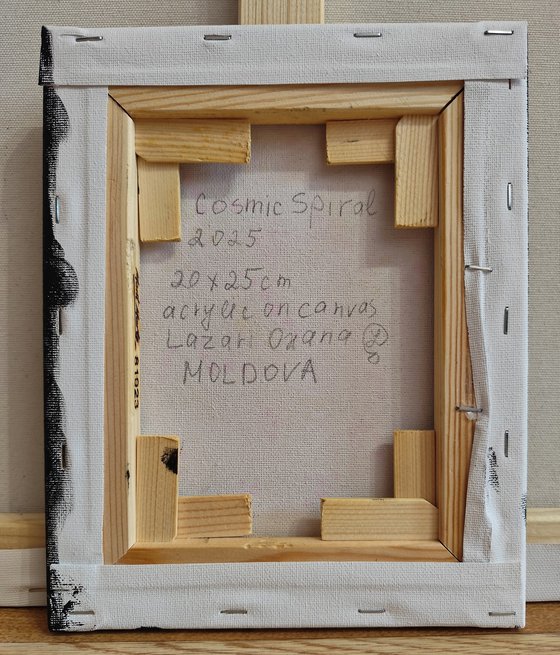 Cosmic Spiral
2025
20x25cm
acrylic on canvas
Lazari Oxana
MOLDOVA